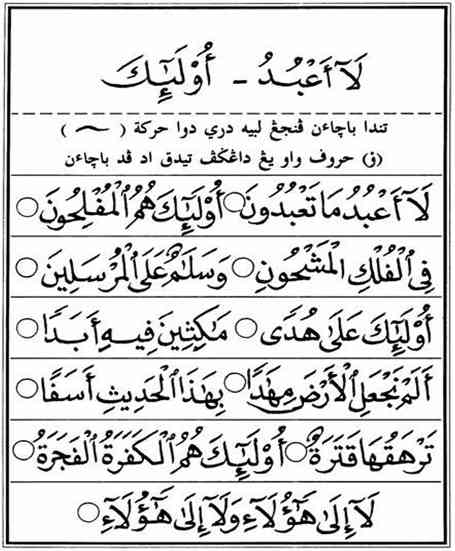 لَآ أَعْبُدُ - أُوْلَٰٓئِكَ
تندا باچاءن ڤنجڠ لبيه دري دوا حركة ( ~ )
(ۏ) حروف واو يڠ داڠكڤ تيدق اد ڤد باچاءن
لَآ أَعْبُدُ مَا تَعْبُدُونَ ○ أُوْلَٰٓئِكَ هُمُ ٱلْمُفْلِحُونَ ○
فِي ٱلْفُلْكِ ٱلْمَشْحُونِ ○ وَسَلَٰمٌ عَلَى ٱلْمُرْسَلِينَ ○
أُوْلَٰٓئِكَ عَلَىٰ هُدًى ○ مَٰكِثِينَ فِيهِ أَبَدًا ○
أَلَمْ نَجْعَلِ ٱلْأَرْضَ مِهَٰدًا ○ بِهَٰذَا ٱلْحَدِيثِ أَسَفًا ○
تَرْهَقُهَا قَتَرَةٌ ○ أُوْلَٰٓئِكَ هُمُ ٱلْكَفَرَةُ ٱلْفَجَرَةُ ○
لَآ إِلَىٰ هَٰٓؤُلَآءِ وَلَآ إِلَىٰ هَٰٓؤُلَآءِ ○